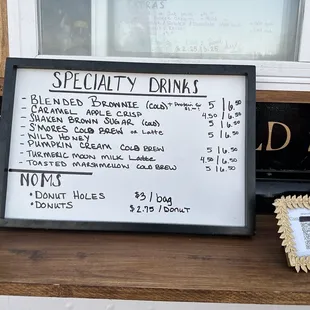 SPECIALTY DRINKS
- BLENDED BROWNIE (COLD) + Protein 5 / 6.50
- CARAMEL APPLE CRISP 4.50 / 6.50
- SHAKEN BROWN SUGAR (COLD) 5 / 6.50
- S'MORES COLD BREW or Latte 5 / 6.50
- WILD HONEY
- PUMPKIN CREAM COLD BREW 5 / 6.50
- TURMERIC MOON MILK Latte 4.50 / 6.50
- TOASTED MARSHMALLOW COLD BREW 5 / 6.50
NOMS
• DONUT HOLES $3 / bag
• DONUTS $2.75 / DONUT
LD